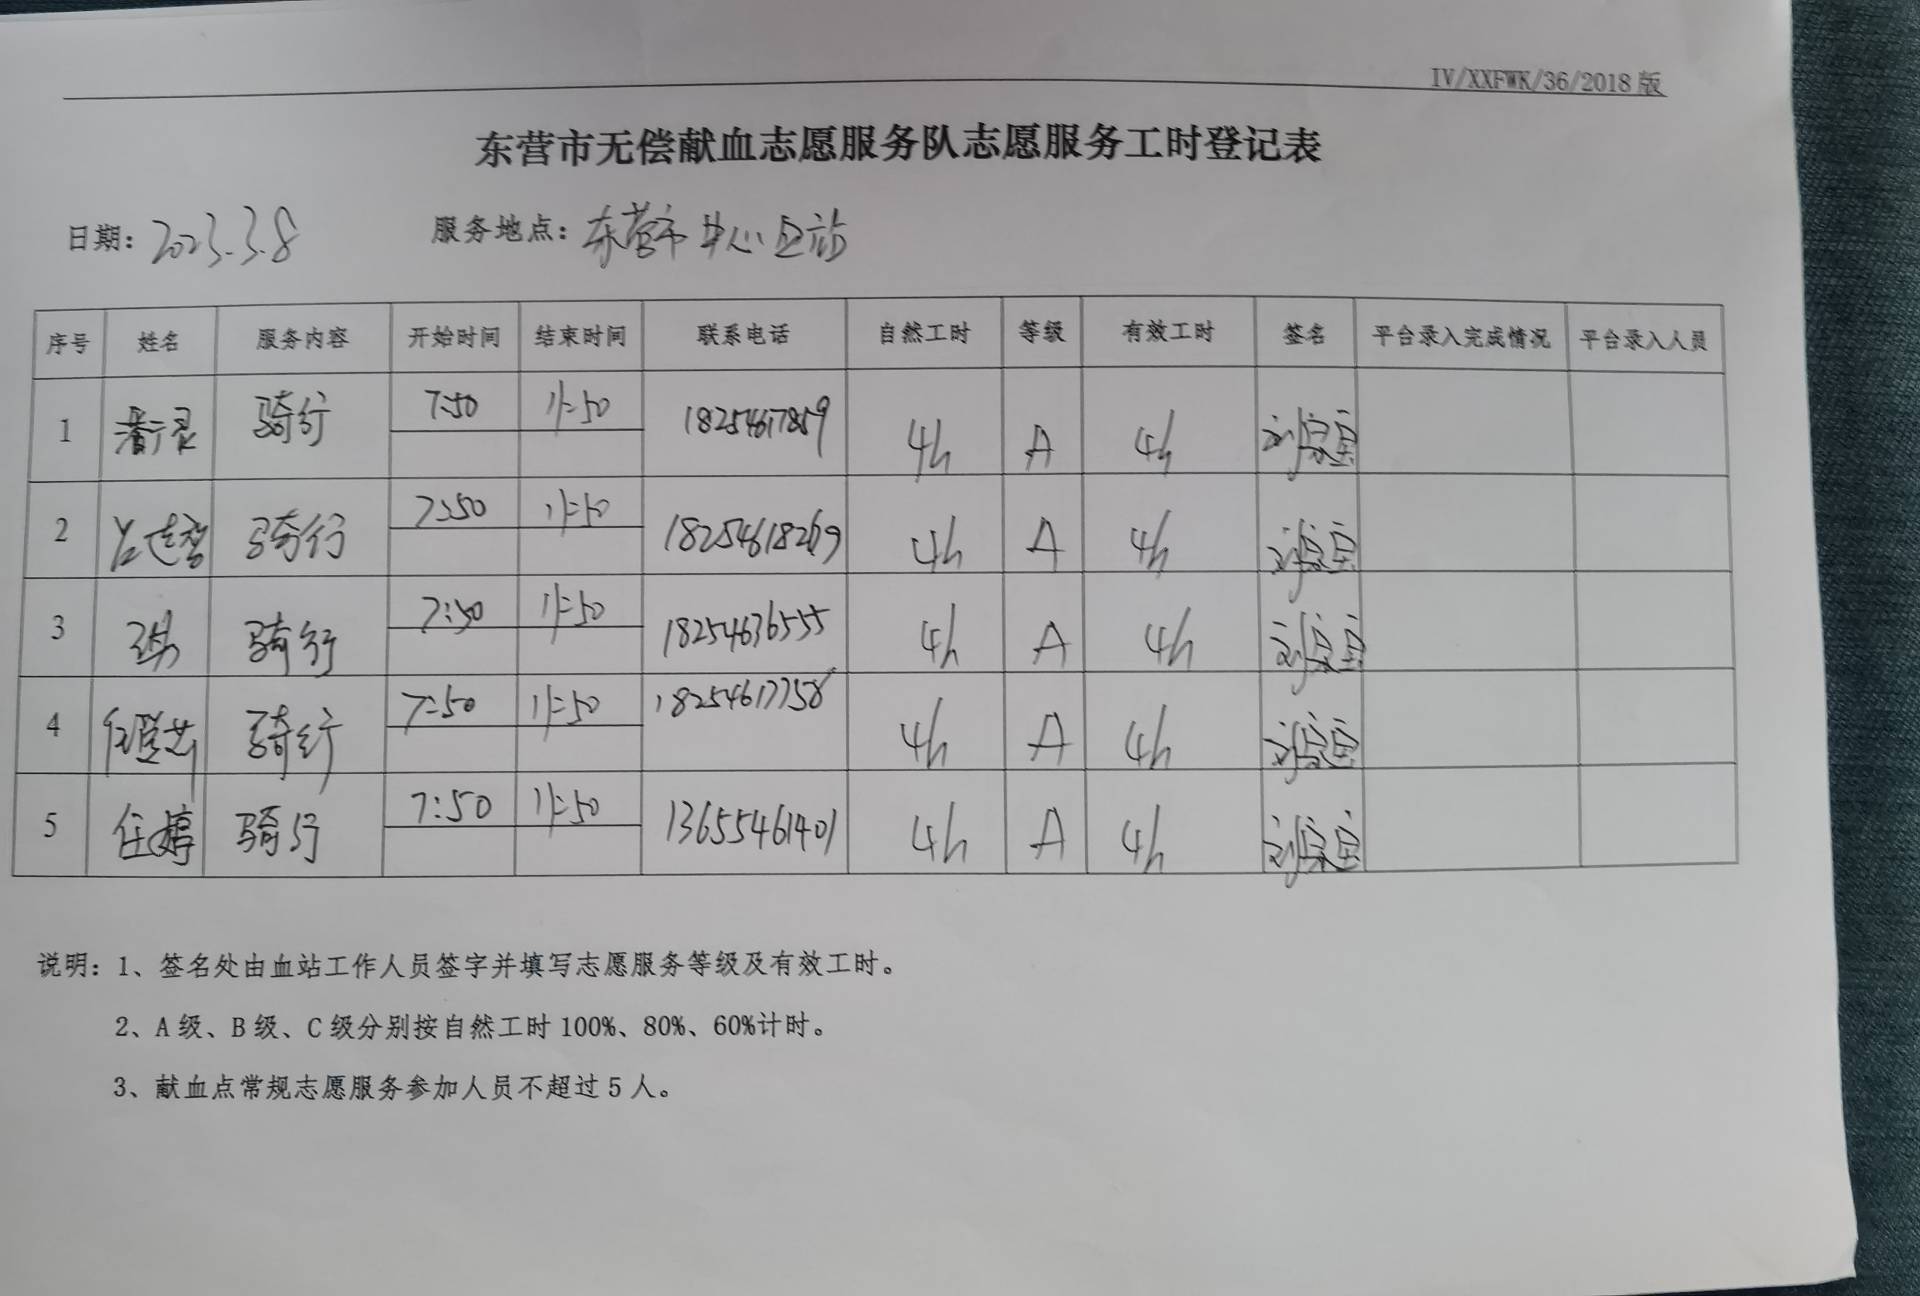 IV/XXFWK/36/2018版
东营市无偿献血志愿服务队志愿服务工时登记表
日期: 2023.3.8 服务地点: 东营市中心血站
序号 姓名 服务内容 开始时间 结束时间 联系电话 自然工时 等级 有效工时 签名 平台录入完成情况 平台录入人员
1 骑行 7:50 11:50 18254617859 4h A 4h
2 骑行 7:50 11:50 18254618269 4h A 4h
3 骑行 7:50 11:50 18254636555 4h A 4h
4 骑行 7:50 11:50 18254617758 4h A 4h
5 任婷 骑行 7:50 11:50 13655461401 4h A 4h
说明: 1、签名处由血站工作人员签字并填写志愿服务等级及有效工时。
2、A级、B级、C级分别按自然工时100%、80%、60%计时。
3、献血点常规志愿服务参加人员不超过5人。